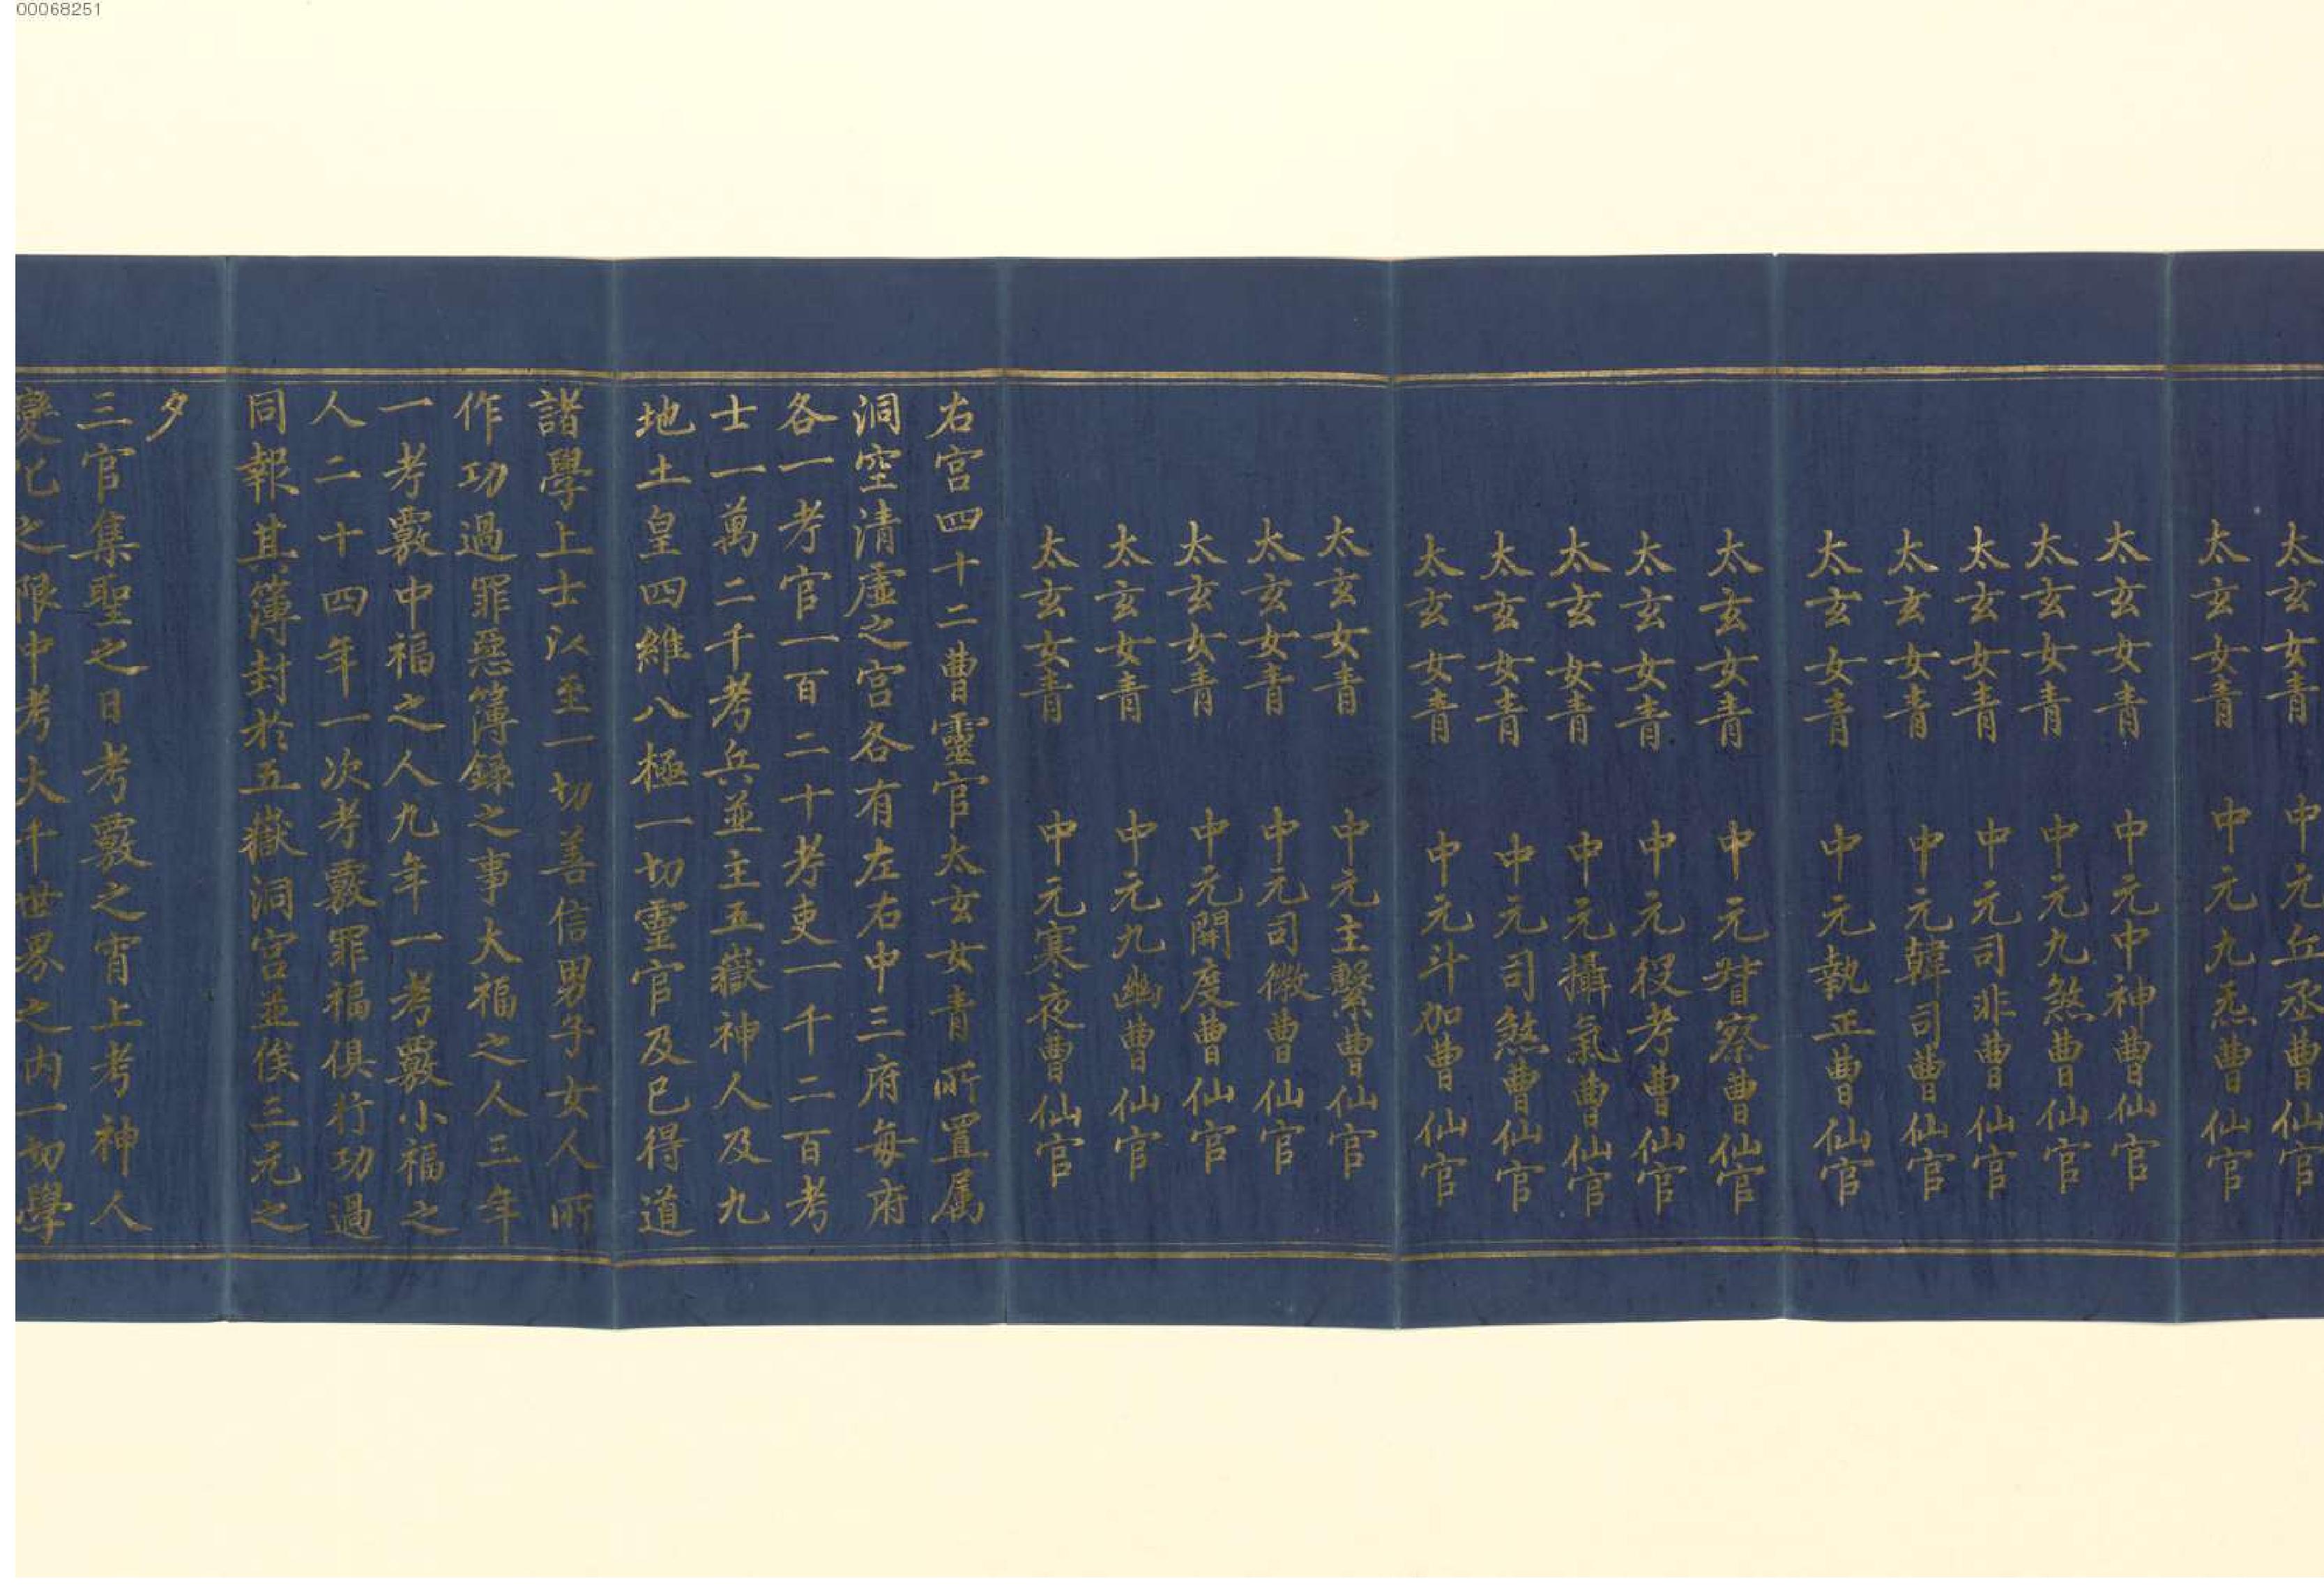 00068251
太玄女青　中元丘丞曹仙官
太玄女青　中元九炁曹仙官
太玄女青　中元中神曹仙官
太玄女青　中元九煞曹仙官
太玄女青　中元司非曹仙官
太玄女青　中元韓司曹仙官
太玄女青　中元執正曹仙官
太玄女青　中元督察曹仙官
太玄女青　中元役考曹仙官
太玄女青　中元攝氣曹仙官
太玄女青　中元司煞曹仙官
太玄女青　中元斗加曹仙官
太玄女青　中元主繫曹仙官
太玄女青　中元司徼曹仙官
太玄女青　中元開度曹仙官
太玄女青　中元九幽曹仙官
太玄女青　中元寒夜曹仙官
右宮四十二曹靈官太玄女青所置屬
洞空清虛之宮各有左右中三府每府
各一考官一百二十考吏一千二百考
士一萬二千考兵並主五嶽神人及九
地土皇四維八極一切靈官及已得道
諸學上士以至一切善信男子女人所
作功過罪惡簿錄之事大福之人三年
一考覈中福之人九年一考覈小福之
人二十四年一次考覈罪福俱行功過
同報其簿封於五嶽洞宮並俟三元之
夕
三官集聖之日考覈之宵上考神人
變化之限中考大千世界之內一切學